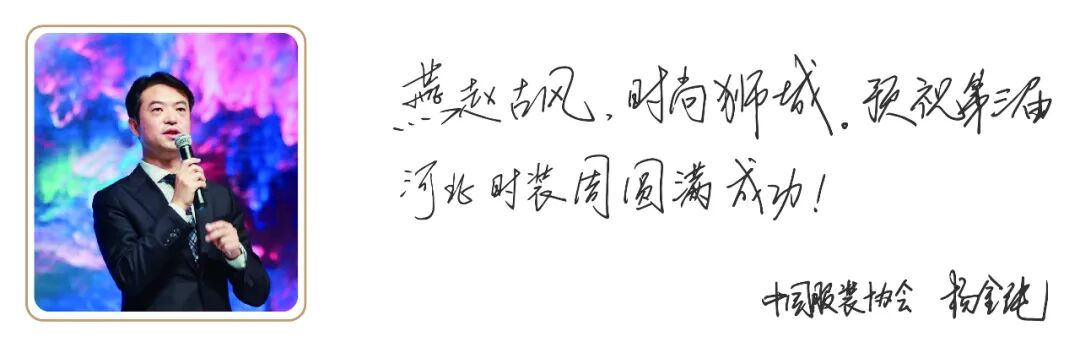 燕赵古风，时尚狮城。预祝第三届
河北时装周圆满成功！
中国服装协会 杨金纯